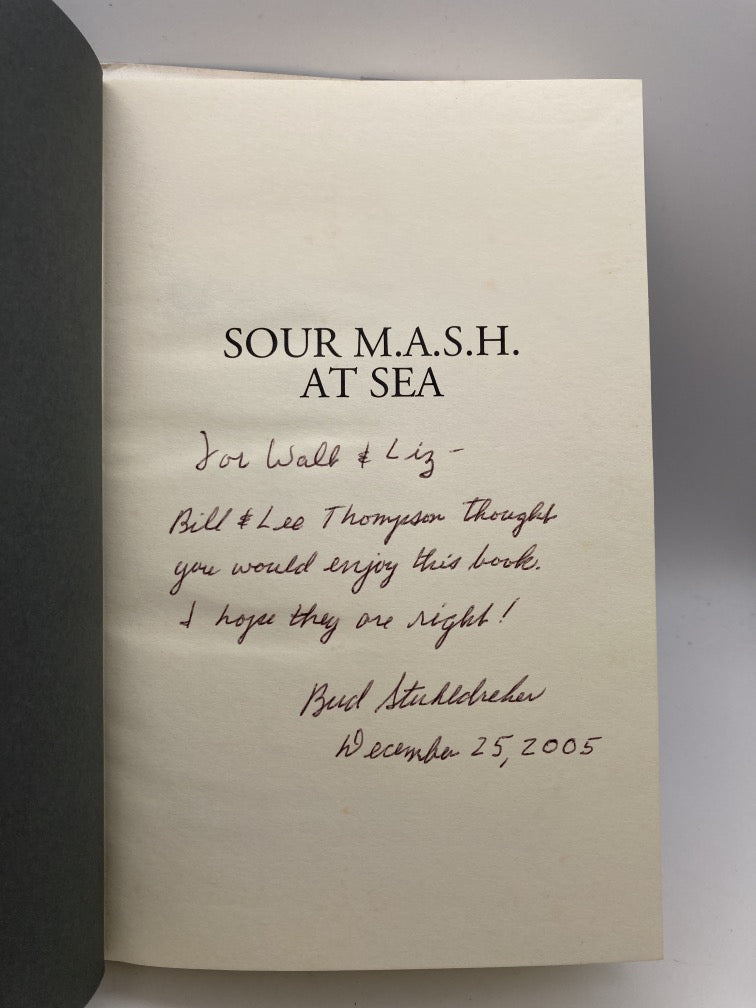 SOUR M.A.S.H.
AT SEA
For Walt & Liz -
Bill & Lee Thompson thought
you would enjoy this book.
I hope they are right!
Bud Stuhldreher
December 25, 2005